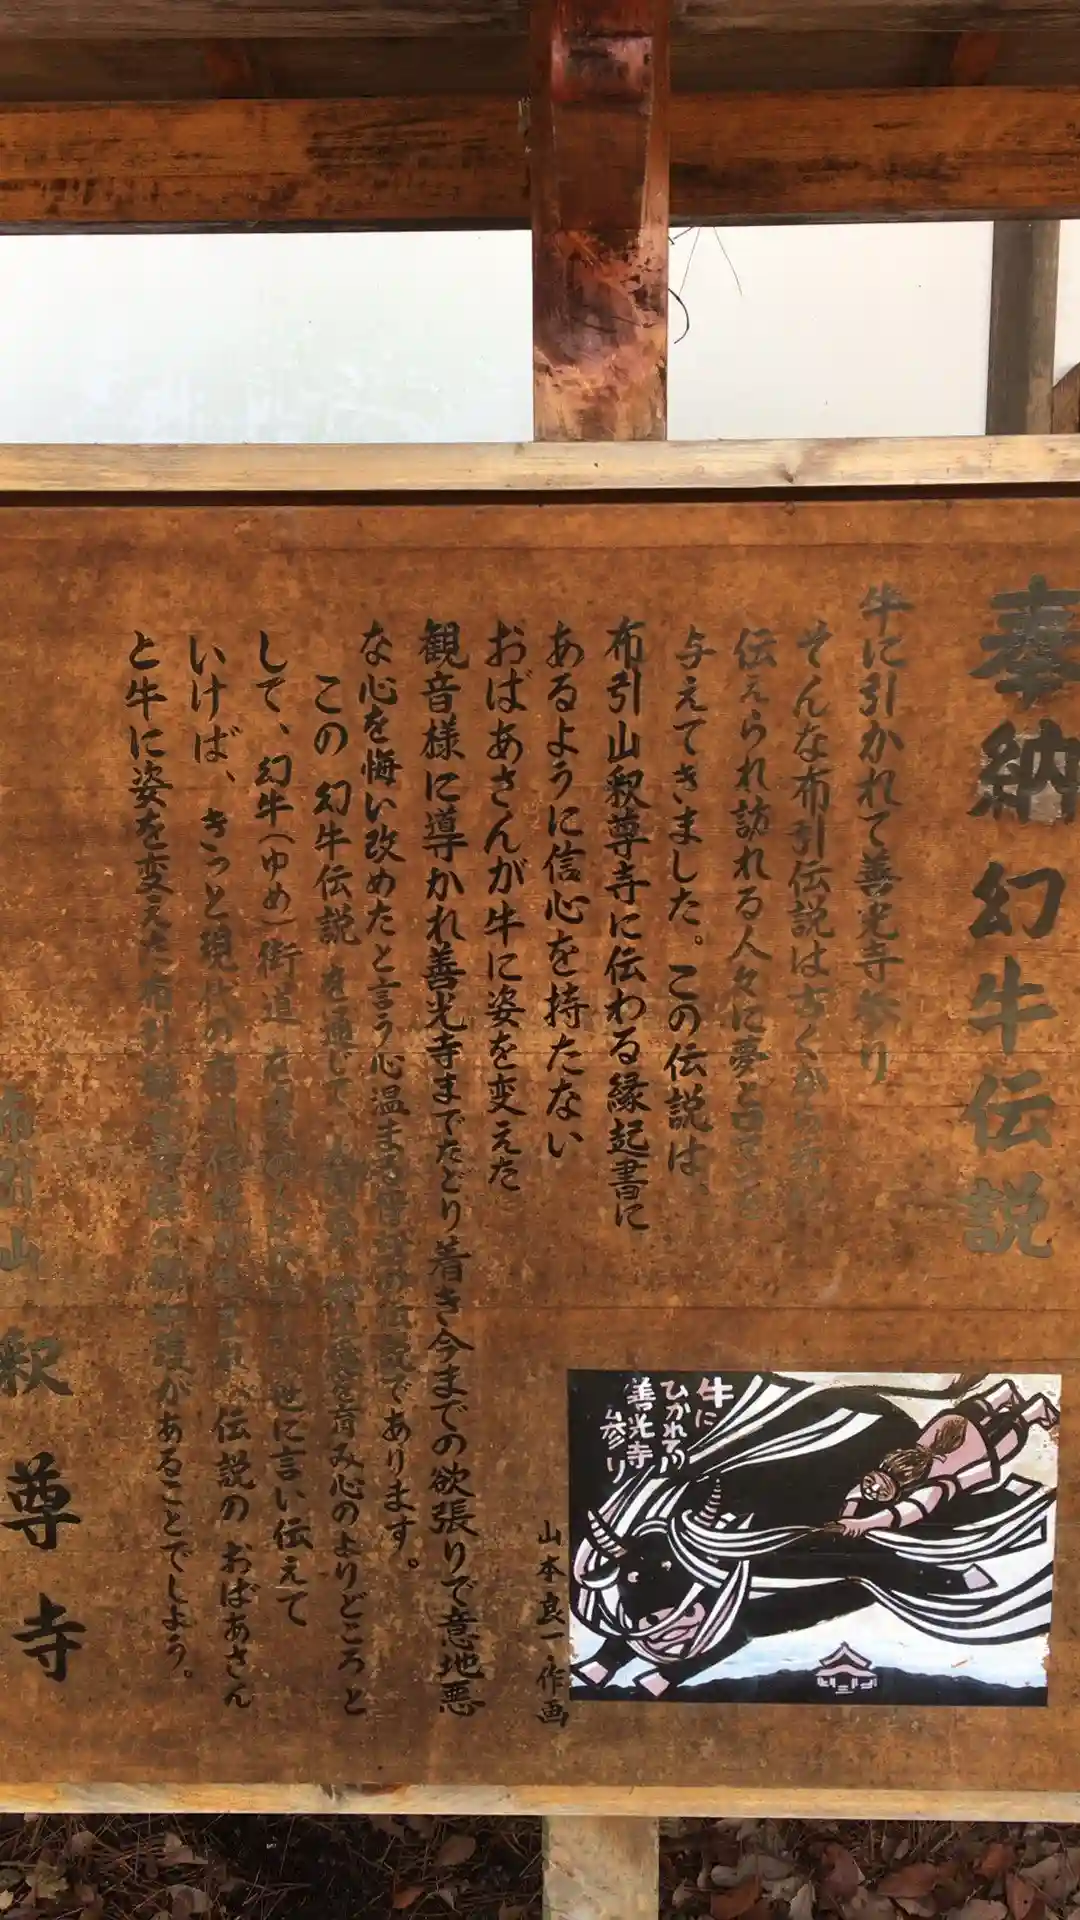 奉納 幻牛伝説
牛に引かれて善光寺参り
そんな布引伝説は古くから
伝えられ訪れる人々に夢と
与えてきました。この伝説は、
布引山釈尊寺に伝わる縁起書に
あるように信心を持たない
おばあさんが牛に姿を変えた
観音様に導かれ善光寺までたどり着き今までの欲張りで意地悪
な心を悔い改めたと言う心温まる伝説であります。
この幻牛伝説を通じて、心のよりどころと
して、幻牛(ゆめ)街道 世に言い伝えて
いけば、きっと現代の布引伝説が生まれ、伝説のおばあさん
と牛に姿を変えた布引観音様の御加護があることでしょう。
布引山 釈尊寺
牛に
ひかれて
善光寺
参り
山本良一作画